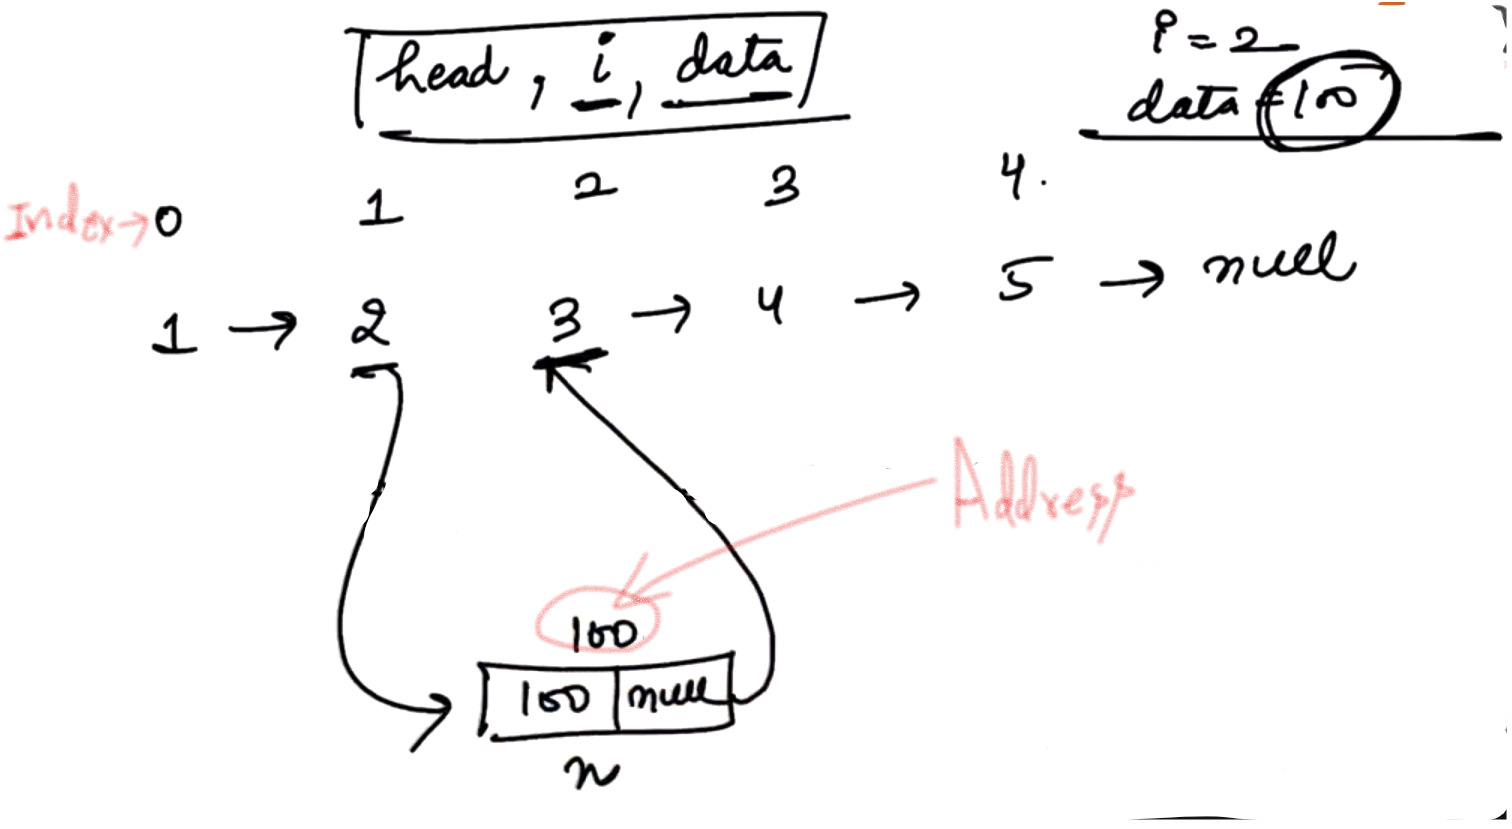 head, i, data
i = 2
data = 100
Index → 0 1 2 3 4.
1 → 2 3 → 4 → 5 → null
Address
100
100 null
n